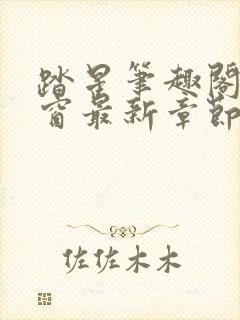 踏星笔趣阁
窗最新章节
佐佐木木